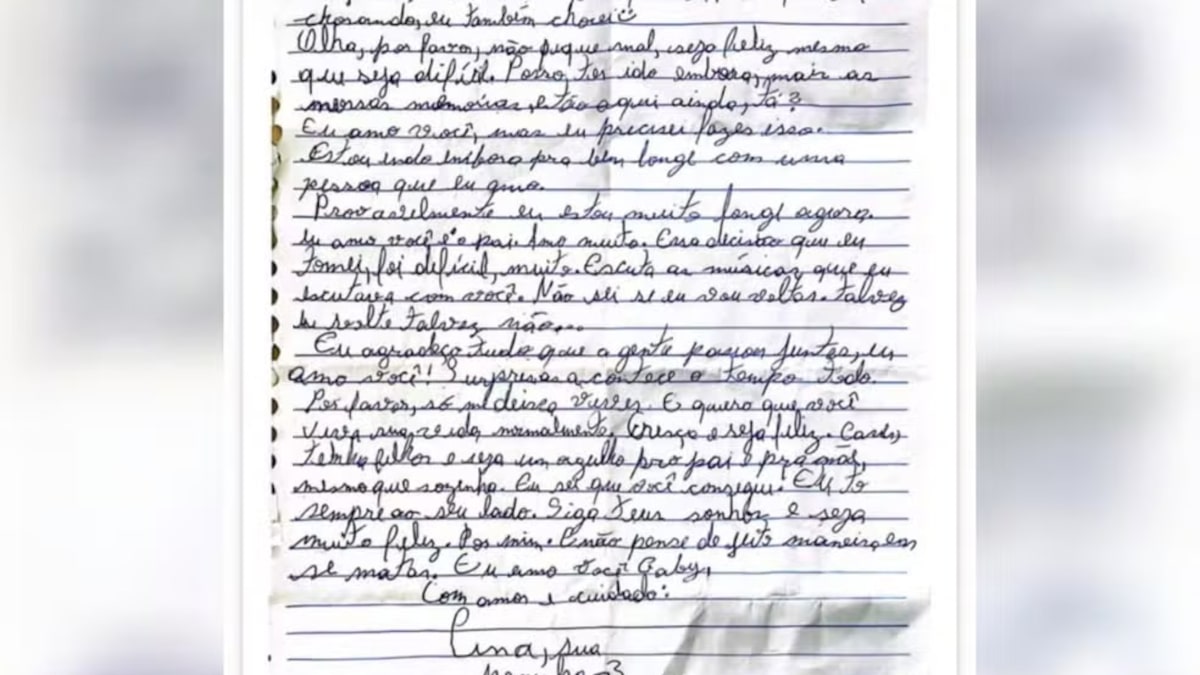 chorando, eu também chorei
Olha, por favor, não fique mal, seja feliz mesmo
que seja difícil. Posso ter ido embora, mais as
nossas memórias, estão aqui ainda, tá?
Eu amo você, mas eu precisei fazer isso.
Estou indo embora pra bem longe com uma
pessoa que eu amo.
Provavelmente eu estou muito longe agora.
Eu amo você e o pai. Amo muito. Essa decisão que eu
tomei, foi difícil, muito. Escuta as músicas que eu
escutava com você. Não sei se eu vou voltar. Talvez
eu volte talvez não...
Eu agradeço tudo que a gente passou juntas, eu
amo você! Surpresas acontece o tempo todo.
Por favor, só me deixa viver. E quero que você
viva sua vida normalmente. Cresça e seja feliz. Case,
tenha filhos e seja um orgulho pro pai e pra mãe,
mesmo que sozinha. Eu sei que você consegue. Eu tô
sempre ao seu lado. Siga teus sonhos e seja
muito feliz. Por mim. E não pense de jeito maneira em
se matar. Eu amo você Gaby,
Com amor e cuidado:
sua